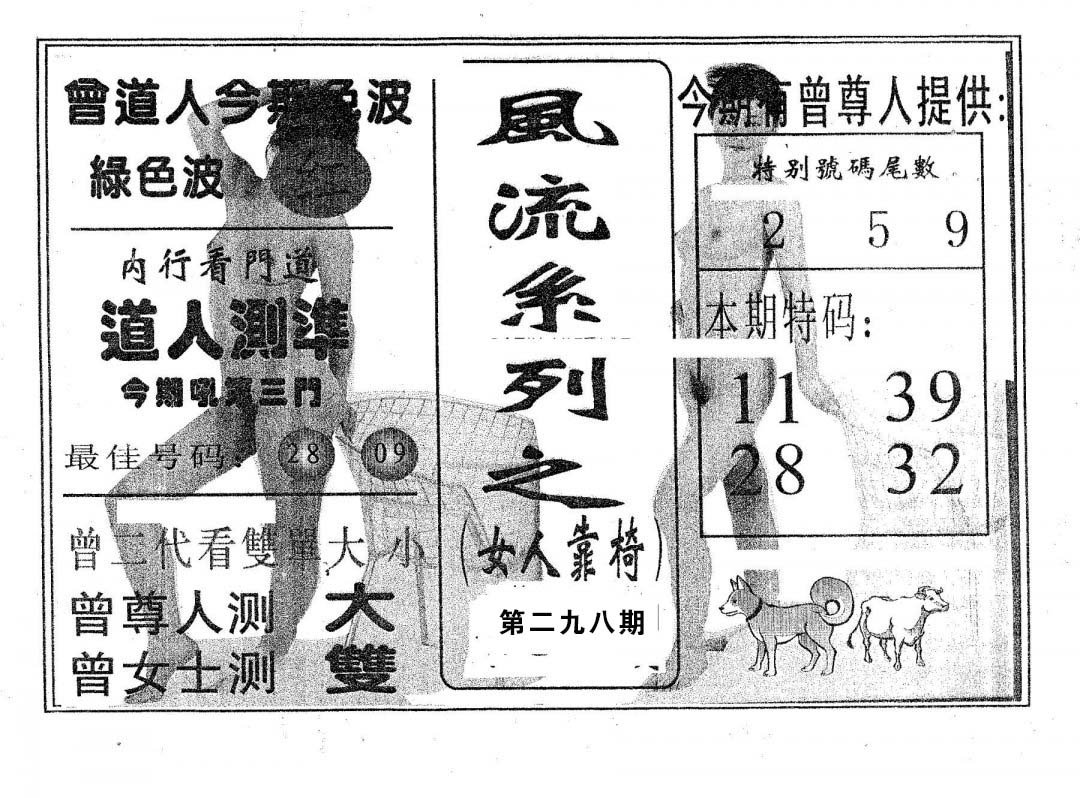 曾道人今期色波
綠色波 紅
内行看門道
道人測準
今期吼準三門
最佳号码: 28 09
曾二代看雙單大小
曾尊人测 大
曾女士测 雙
風流系列之
(女人靠椅)
第二九八期
今期有曾尊人提供:
特别號碼尾數
2 5 9
本期特码:
11 39
28 32